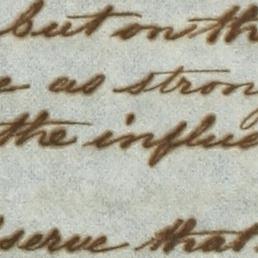 but on th
e as stron
the influe
serve that